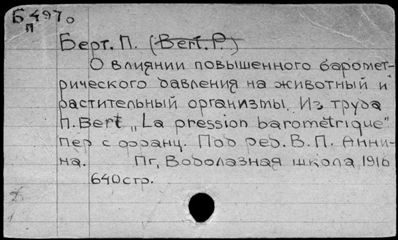 Б 4970
п
Берт. П. (Bert. P.)
О влиянии повышенного баромет-
рического давления на животный и
растительный организмы. Из труда
П. Bert „La pression barométrique"
Пер с франц. Под ред. В. П. Анни-
на. Пг, Водолазная школа, 1916
640 стр.